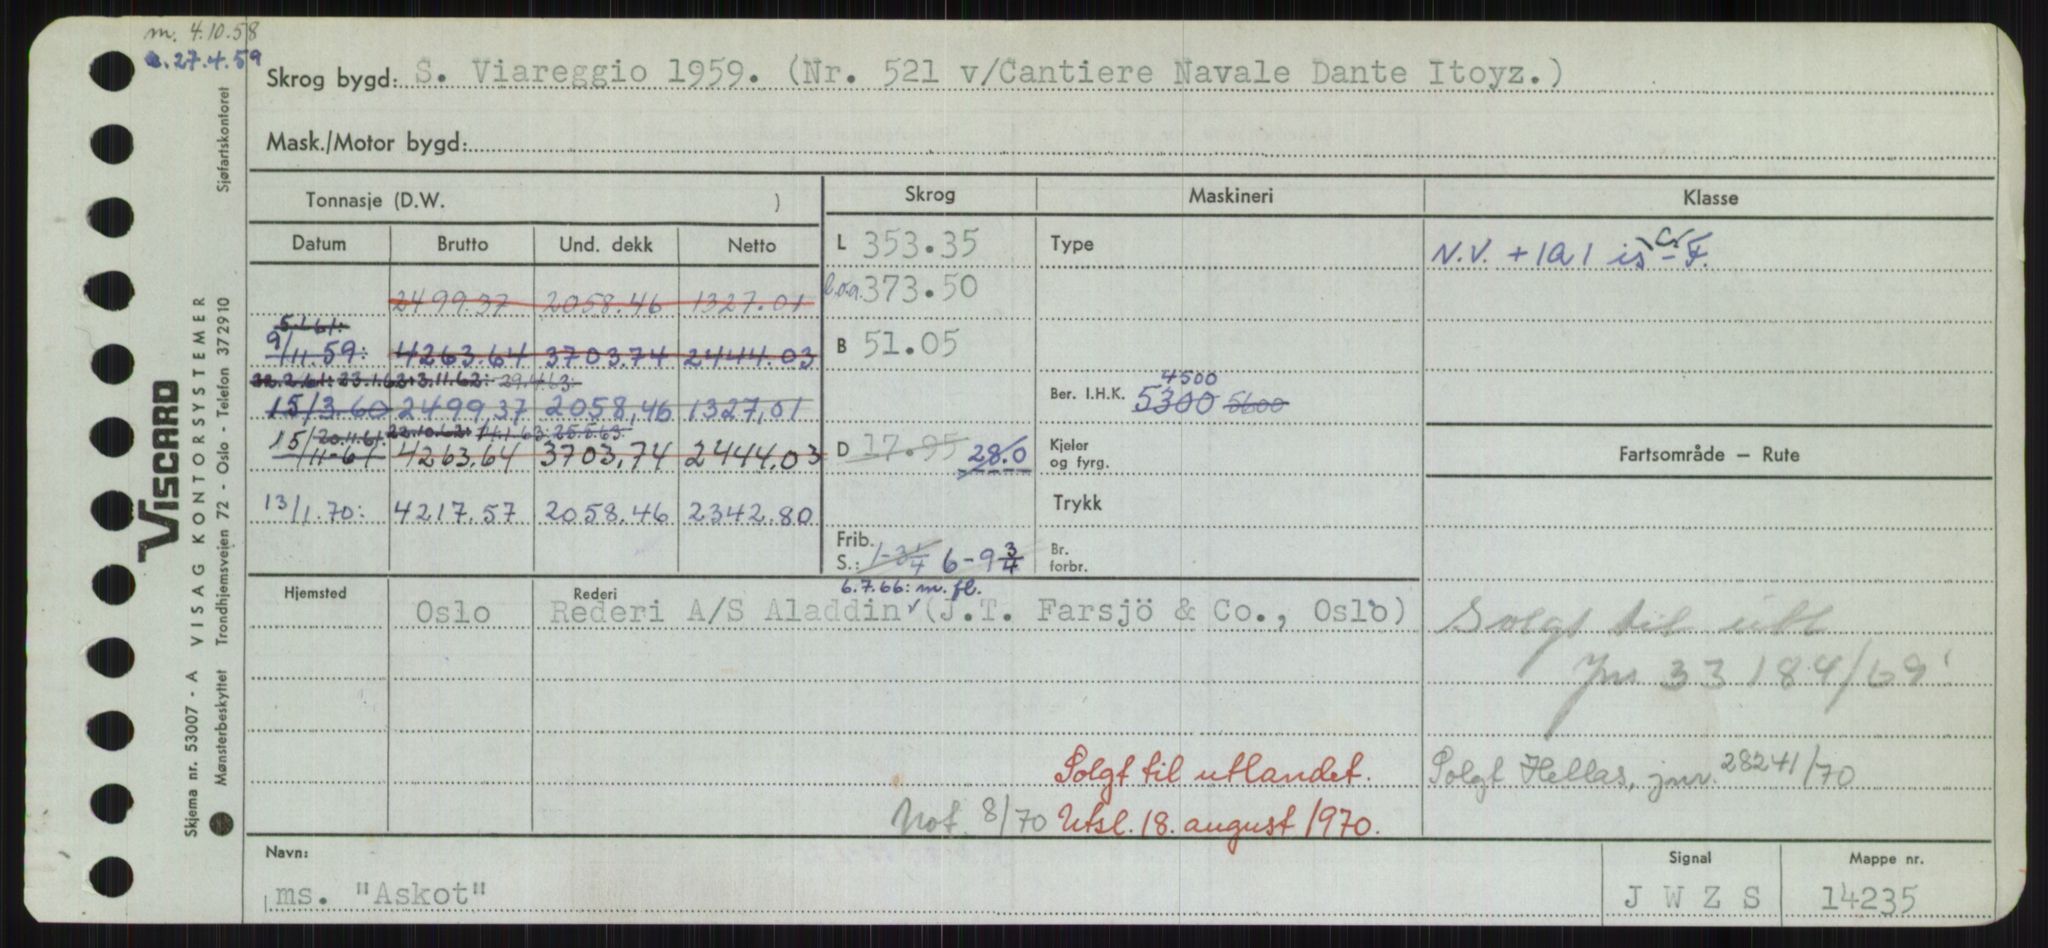 m. 4.10.58
27.4.59
Skrog bygd: S. Viareggio 1959. (Nr. 521 v/Cantiere Navale Dante Itoyz.)
Mask./Motor bygd:
Tonnasje (D.W. )
Skrog
Maskineri
Klasse
Datum Brutto Und. dekk Netto
L 353.35
Type
N.V. +1A1 is C -F.
2499.37 2058.46 1327.01
l.o.a. 373.50
5.1.61:
9/11.59: 4263.64 3703.74 2444.03
B 51.05
22.2.61: 23.1.62: 3.11.62: 29.4.63:
4500
15/3.60 2499,37 2058,46 1327,01
Ber. I.H.K. 5300 5600
20.11.61. 22.10.62: 14.1.63: 25.5.63
15/11-61 4263,64 3703,74 2444.03
D 17.95 28.0
Kjeler og fyrg.
Fartsområde – Rute
13/1.70: 4217.57 2058.46 2342.80
Trykk
Frib. S.: 1-3 1/4 6-9 3/4
Br. forbr.
6.7.66: m. fl.
Hjemsted
Rederi
Oslo Rederi A/S Aladdin (J.T. Farsjö & Co., Oslo)
Solgt til utl
Jnr 33184/69
Solgt til utlandet.
Solgt Hellas, jnr. 28241/70
Not. 8/70 Utsl. 18. august 1970.
Navn:
Signal
Mappe nr.
ms. "Askot"
J W Z S
14235
Sjøfartskontoret
VISCARD
VISAG KONTORSYSTEMER
Trondhjemsveien 72 - Oslo - Telefon 372910
Skjema nr. 53007 - A
Mønsterbeskyttet